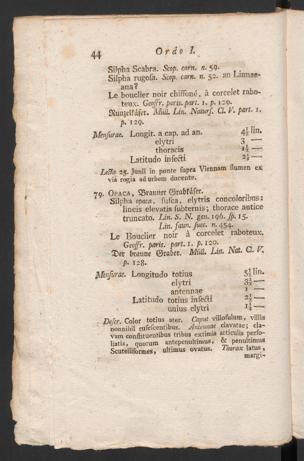 44 Ordo I.
Silpha Scabra. Scop. carn. n. 59.
Silpha rugosa. Scop. carn. n. 52. an Linnae-
ana?
Le bouclier noir chiffoné, à corcelet rabo-
teux. Geoffr. paris. part. 1. p. 120.
Runzelkäfer. Müll. Lin. Naturs. C. V. part. 1.
p. 129.
Mensurae. Longit. a cap. ad an. 4½ lin.
elytri 3 —
thoracis
Latitudo insecti
Lecta 25. Junii in ponte supra Viennam flumen ex
via regia ad urbem ducente.
79. OPACA, Brauner Grabkäfer.
Silpha opaca, fusca, elytris concoloribus:
lineis elevatis subternis; thorace antice
truncato. Lin. S. N. gen. 196. sp. 15.
Lin. faun. suec. n. 454.
Le Bouclier noir à corcelet raboteux.
Geoffr. paris. part. 1. p. 120.
Der braune Grabet. Müll. Lin. Nat. C. V.
p. 128.
Mensurae. Longitudo totius lin.
elytri
antennae 1 —
Latitudo totius insecti
unius elytri
Descr. Color totius ater. Caput villosulum, villis
nonnihil rufescentibus. Antennae clavatae; cla-
vam constituentibus tribus extimis articulis perfo-
liatis, quorum antepenultimus, & penultimus
Scutelliformes, ultimus ovatus. Thorax latus,
margi-